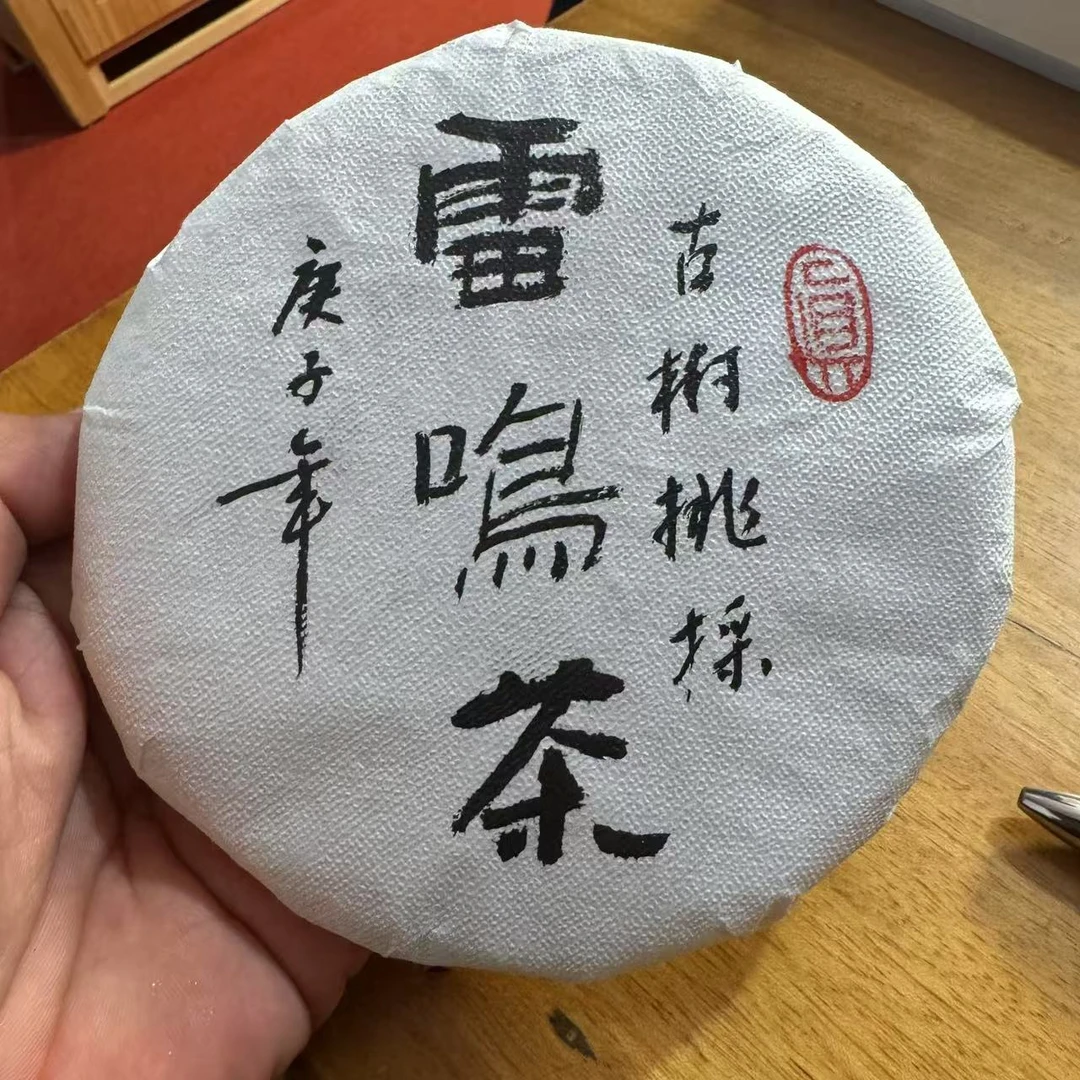 古樹挑採
雷鳴茶
庚子年